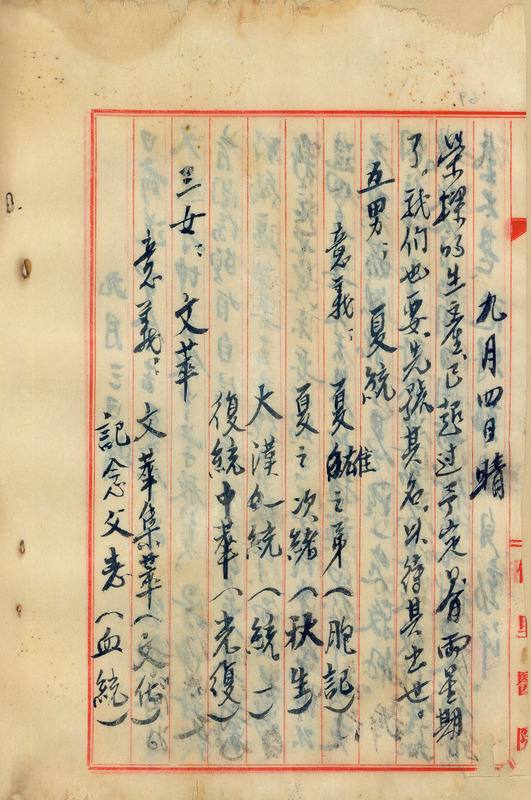 九月四日晴
荣探的生產已超过予定日有两星期
了。我们也要先號其名。以待其出世。
五男： 夏統
意義： 夏雄之弟（胞記）
夏之次緒（秋生）
大漢允統（統一）
復統中華（光復）
三女： 文華
意義： 文華集華（文化）
記念父老（血統）